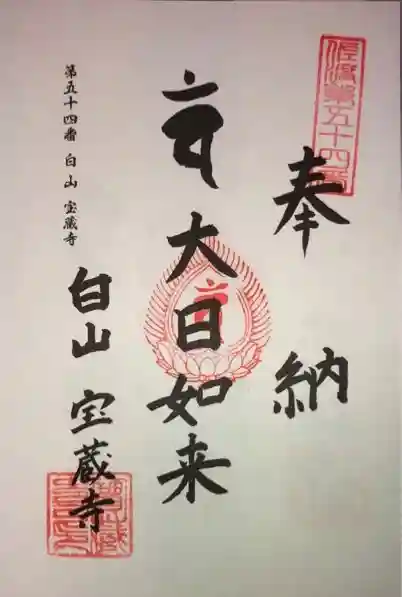 奉納
佐渡第五十四番
大日如来
白山 宝蔵寺
第五十四番 白山 宝蔵寺